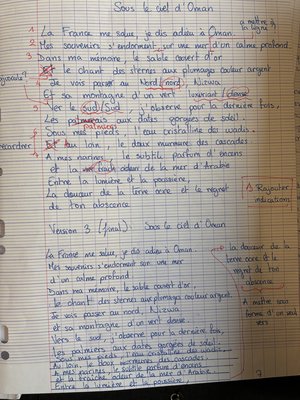 Sous le ciel d'Oman
à mettre à la ligne
1 La France me salue, je dis adieu à Oman.
2 Mes souvenirs s'endorment sur une mer d'un calme profond.
3 Dans ma mémoire, le sable couvert d'or
Et le chant des sternes aux plumages couleur argent
Je vois passer au Nord (nord), Nizwa
Et sa montagne d'un vert dense
Vers le Sud/Sud j'observe pour la dernière fois,
Les palmeraies aux dates gorgées de soleil.
palmiers
Sous mes pieds, l'eau cristalline des wadis.
Et au loin, le doux murmure des cascades
A mes narines, le subtile parfum d'encens
et la odeur de la mer d'Arabie
Entre la lumière et la poussière,
La douceur de la terre ocre et le regret
de ton absence
Rajouter indications
Version 3 (final): Sous le ciel d'Oman
La France me salue, je dis adieu à Oman.
Mes souvenirs s'endorment sur une mer
d'un calme profond
Dans ma mémoire, le sable couvert d'or,
le chant des sternes aux plumages couleur argent.
Je vois passer au nord, Nizwa
et sa montagne d'un vert dense.
Vers le sud, j'observe pour la dernière fois,
Les palmiers aux dates gorgées de soleil.
Sous mes pieds, l'eau cristalline des wadis.
Au loin, le doux murmure des cascades
A mes narines, le subtile parfum d'encens
et la fraîche odeur de la mer d'Arabie.
Entre la lumière et la poussière,
la douceur de la terre ocre et le regret de ton absence
A mettre sous forme d'un seul vers
7